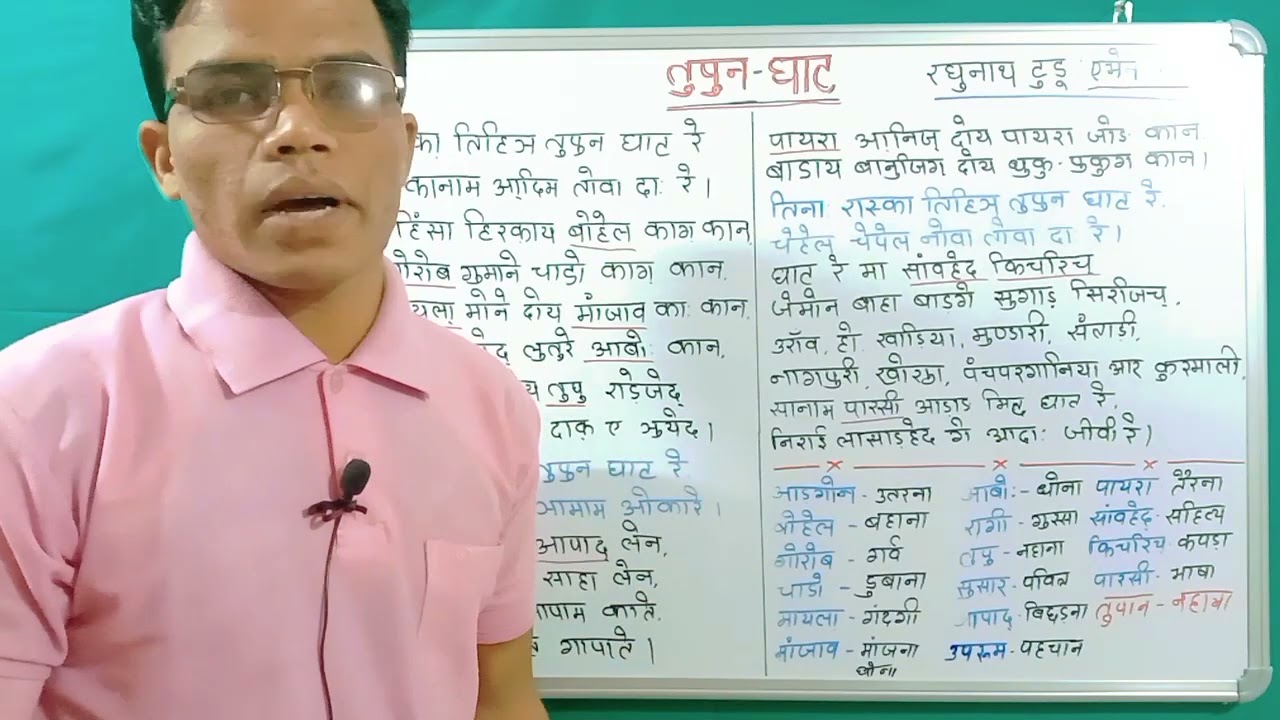 तुपुन-घाट
रघुनाथ टुडू
तिहिञ तुपुन घाट रे
कानाम आ़दिम लोवा दाः रे।
हिंसा हिरकाय बोहेल काग़ कान,
गोरोब गुमाने चाडो काग़ कान,
मोने दोय मांजाव काः कान,
लुलुरे आबोः कान,
तुपु राेड़ेजेद्
दाक् ए ञुयेद।
तुपुन घाट रे
ञामाम ओकारे।
आपाद् लेन,
साहा लेन,
काते,
गापाते।
पायरा आ़निज् दोय पायरा जोङ कान,
बाडाय बानुिजग़ दोय थुकु-फुकुग़ कान।
तिनाः रास्का तिहिञ् तुपुन घाट रे,
चेहेल् चेपेल नोवा लोवा दा रे।
घाट रे मा सांवहेद् किचरिच्
जेमोन बाहा बाडगे सुगाड़ सिरीजच्,
उराँव, हो, खाडिया, मुण्डारी, संताड़ी,
नागपुरी, खोरठा, पंचपरगानिया आर कुरमाली,
सानाम पारसी आड़ाङ मित् घाट रे,
निराई लासाड़हेद गे आदाः जीवी रे।
आडगोन - उतरना आबोः - धोना पायरा तैरना
बोहेल - बहाना रागी - गुस्सा सांवहेद् - सहित्य
गोरोब - गर्व तुपु - नहाना किचरिच् कपड़ा
चाडो - डुबाना सुसार - पवित्र पारसी - भाषा
मायला - गंदगी आपाद् - बिछड़ना तुपान - नहाना
मांजाव - मांजना उपरूम - पहचान
धोना